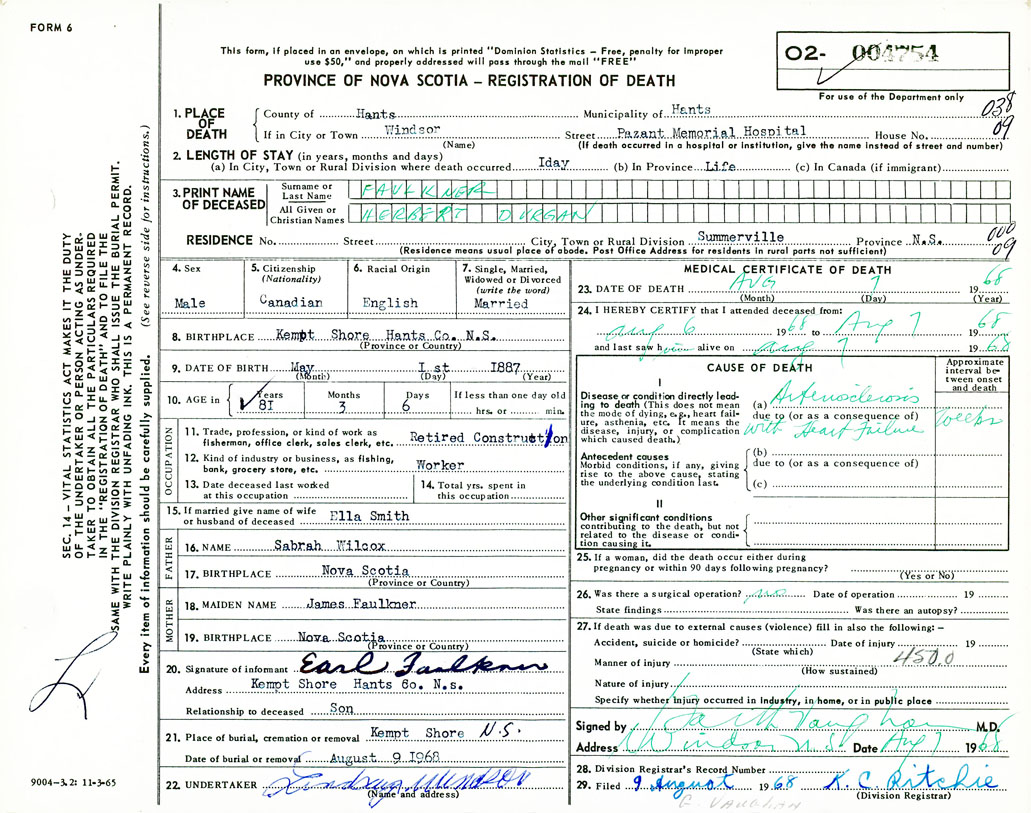 FORM 6
This form, if placed in an envelope, on which is printed "Dominion Statistics – Free, penalty for improper
use $50," and properly addressed will pass through the mail "FREE"
PROVINCE OF NOVA SCOTIA – REGISTRATION OF DEATH
02- 004754
For use of the Department only
038
09
1. PLACE OF DEATH
County of Hants Municipality of Hants
If in City or Town Windsor Street Pazant Memorial Hospital House No.
(Name) (If death occurred in a hospital or institution, give the name instead of street and number)
2. LENGTH OF STAY (in years, months and days)
(a) In City, Town or Rural Division where death occurred 1day (b) In Province Life (c) In Canada (if immigrant)
3. PRINT NAME OF DECEASED
Surname or Last Name FAULKNER
All Given or Christian Names HERBERT DURGAN
RESIDENCE No. Street City, Town or Rural Division Summerville Province N.S.
(Residence means usual place of abode. Post Office Address for residents in rural parts not sufficient)
000
09
4. Sex
Male
5. Citizenship
(Nationality)
Canadian
6. Racial Origin
English
7. Single, Married,
Widowed or Divorced
(write the word)
Married
8. BIRTHPLACE Kempt Shore Hants Co. N.S.
(Province or Country)
9. DATE OF BIRTH May 1st 1887
(Month) (Day) (Year)
10. AGE in
Years Months Days If less than one day old
81 3 6 hrs. or min.
OCCUPATION
11. Trade, profession, or kind of work as
fisherman, office clerk, sales clerk, etc. Retired Construction
12. Kind of industry or business, as fishing,
bank, grocery store, etc. Worker
13. Date deceased last worked
at this occupation
14. Total yrs. spent in
this occupation
15. If married give name of wife
or husband of deceased Ella Smith
FATHER
16. NAME Sabrah Wilcox
17. BIRTHPLACE Nova Scotia
(Province or Country)
MOTHER
18. MAIDEN NAME James Faulkner
19. BIRTHPLACE Nova Scotia
(Province or Country)
20. Signature of informant Earl Faulkner
Address Kempt Shore Hants 6o. N.s.
Relationship to deceased Son
21. Place of burial, cremation or removal Kempt Shore N.S.
Date of burial or removal August 9 1968
22. UNDERTAKER
(Name and address)
MEDICAL CERTIFICATE OF DEATH
23. DATE OF DEATH AUG 7 1968
(Month) (Day) (Year)
24. I HEREBY CERTIFY that I attended deceased from:
Aug 6 1968 to Aug 7 1968
and last saw him alive on Aug 7 1968
CAUSE OF DEATH
Approximate
interval be-
tween onset
and death
I
Disease or condition directly lead-
ing to death (This does not mean
the mode of dying, e.g., heart fail-
ure, asthenia, etc. It means the
disease, injury, or complication
which caused death.)
(a) Arteriosclerosis
due to (or as a consequence of)
with Heart Failure weeks
Antecedent causes
Morbid conditions, if any, giving
rise to the above cause, stating
the underlying condition last.
(b)
due to (or as a consequence of)
(c)
II
Other significant conditions
contributing to the death, but not
related to the disease or condi-
tion causing it.
25. If a woman, did the death occur either during
pregnancy or within 90 days following pregnancy?
(Yes or No)
26. Was there a surgical operation? no Date of operation 19
State findings Was there an autopsy?
27. If death was due to external causes (violence) fill in also the following: –
Accident, suicide or homicide? Date of injury 19
(State which)
Manner of injury 450.0
(How sustained)
Nature of injury
Specify whether injury occurred in Industry, in home, or in public place
Signed by Vaughan M.D.
Address Windsor N.S. Date Aug 7 1968
28. Division Registrar's Record Number
29. Filed 9 August 1968 K. C. Ritchie
(Division Registrar)
G. VAUGHAN
SEC. 14 – VITAL STATISTICS ACT MAKES IT THE DUTY
OF THE UNDERTAKER OR PERSON ACTING AS UNDER-
TAKER TO OBTAIN ALL THE PARTICULARS REQUIRED
IN THE "REGISTRATION OF DEATH" AND TO FILE THE
SAME WITH THE DIVISION REGISTRAR WHO SHALL ISSUE THE BURIAL PERMIT.
WRITE PLAINLY WITH UNFADING INK. THIS IS A PERMANENT RECORD.
Every item of information should be carefully supplied. (See reverse side for instructions.)
9004–3.2: 11-3-65